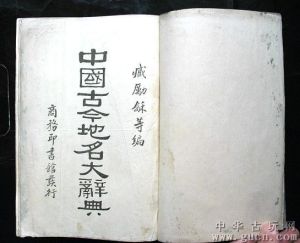 臧勵龢等編
中國古今地名大辭典
商務印書館發行
中华古玩网
www.gucn.com